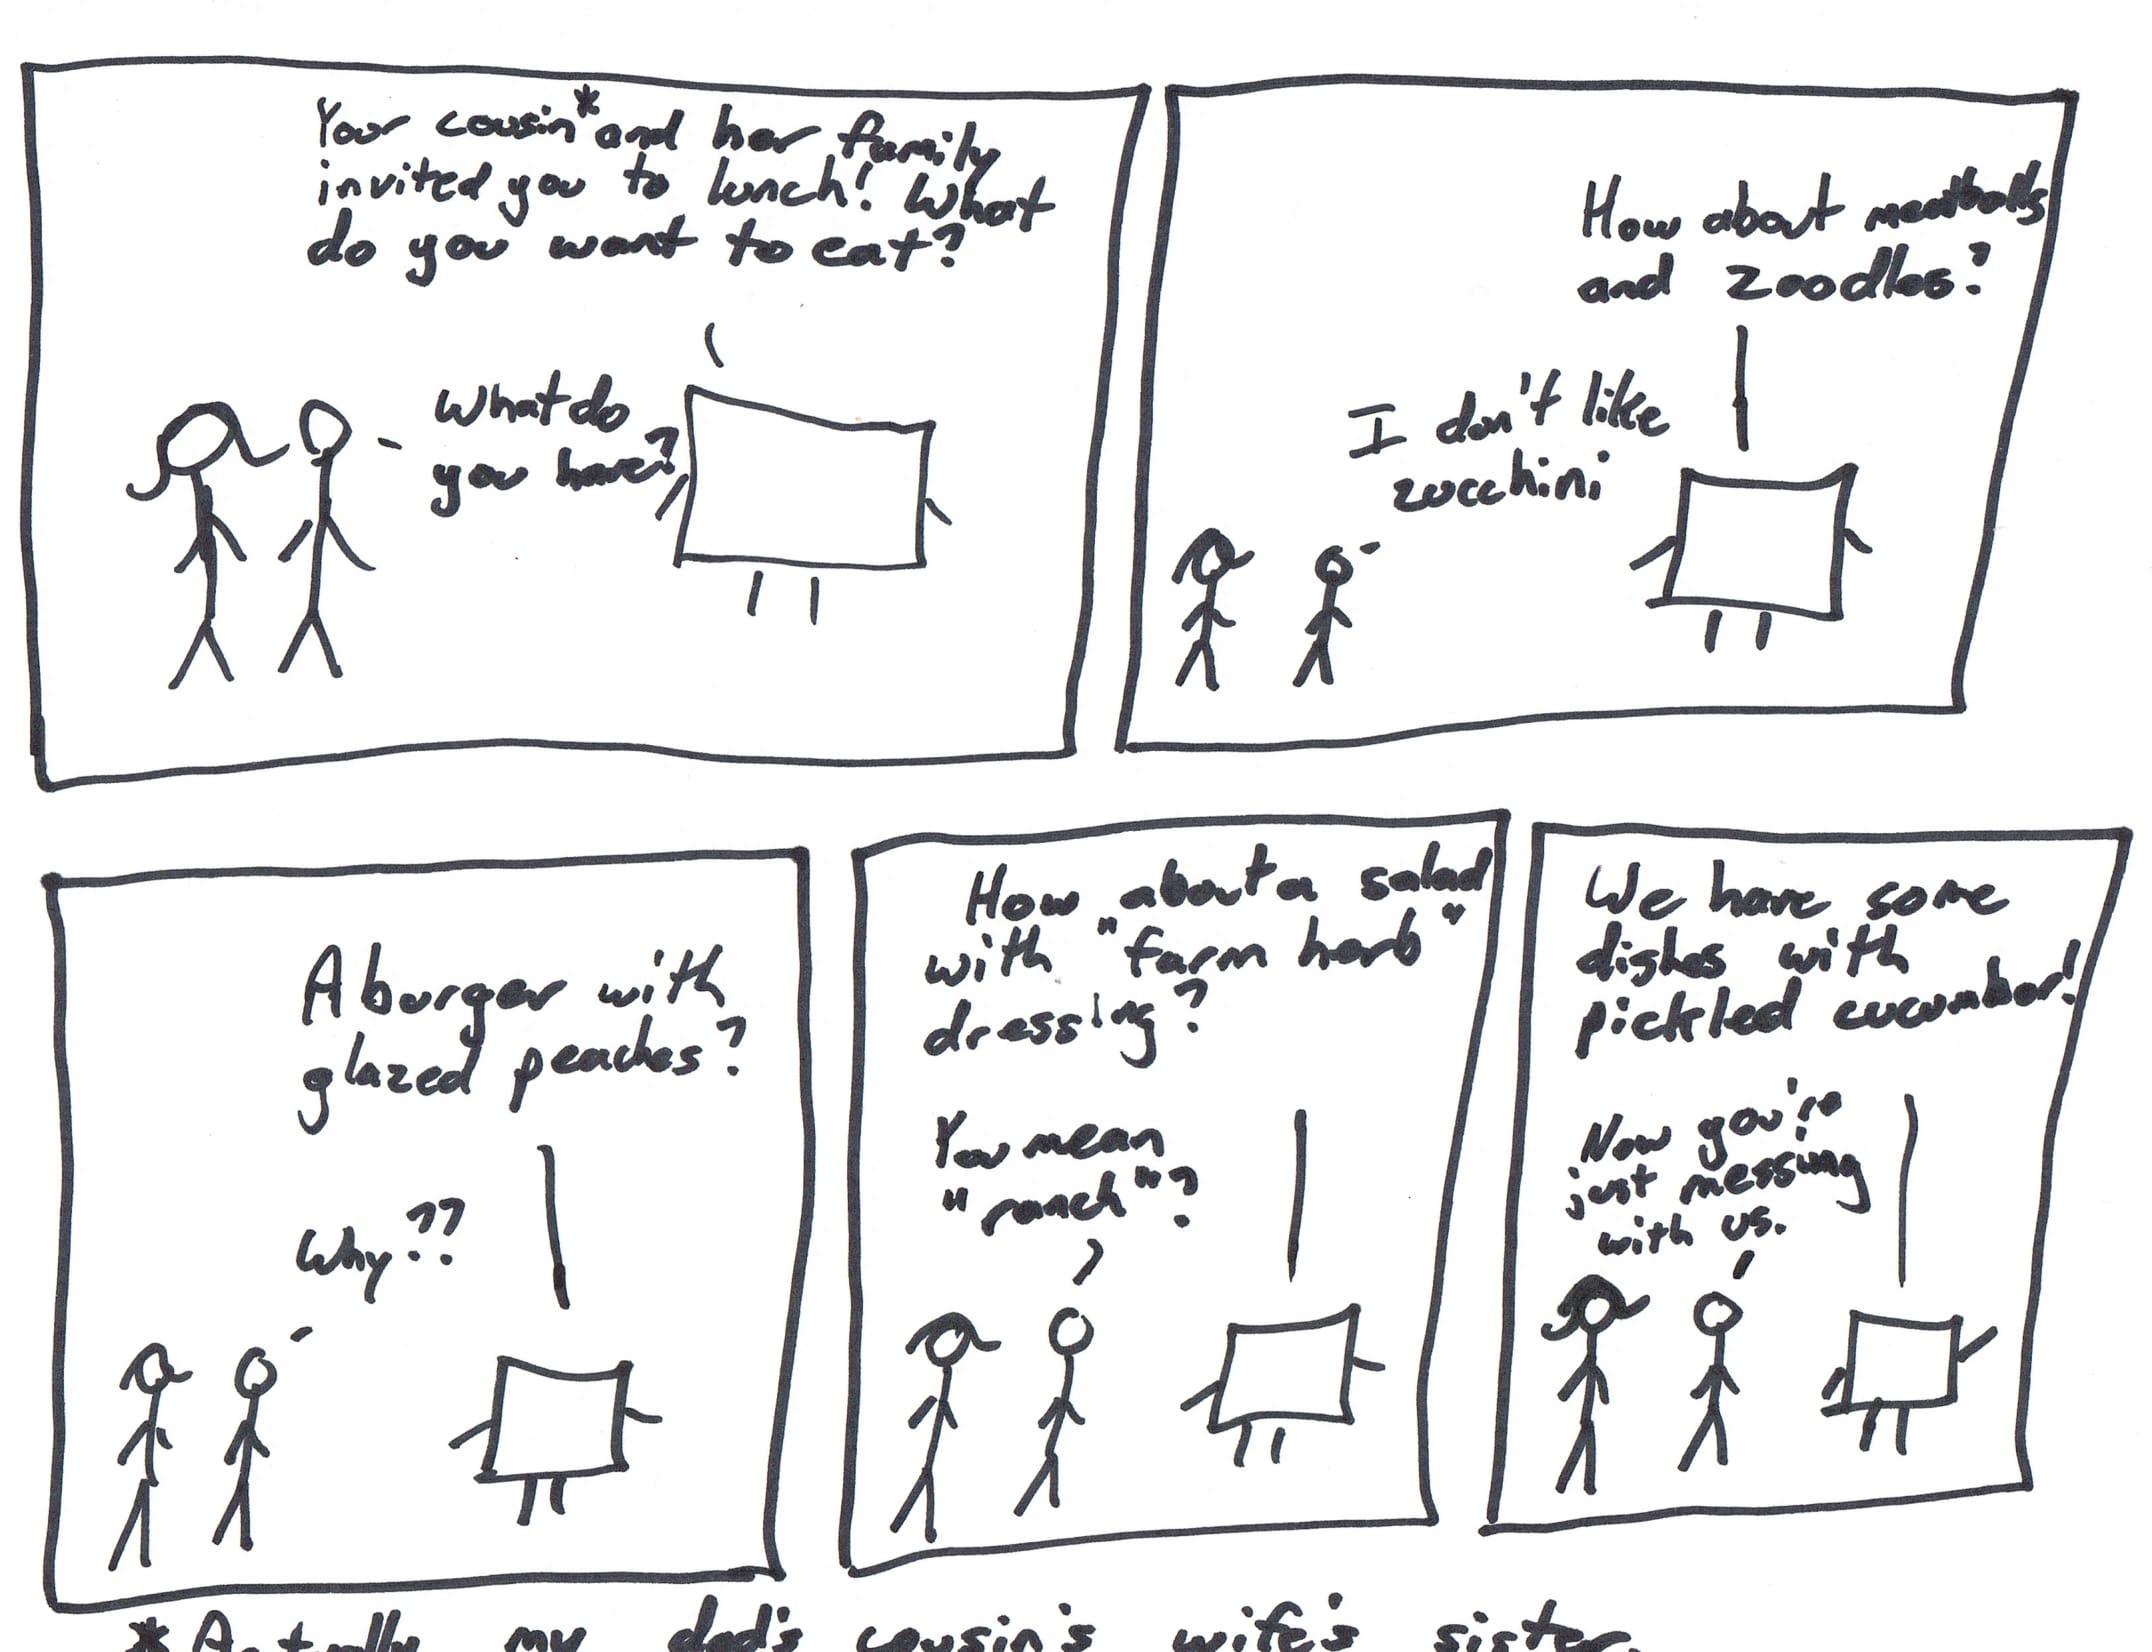 Your cousin* and her family
invited you to lunch! What
do you want to eat?
What do
you have?
How about meatballs
and zoodles?
I don't like
zucchini
A burger with
glazed peaches?
Why??
How about a salad
with "farm herb"
dressing?
You mean
"ranch"?
We have some
dishes with
pickled cucumber!
Now you're
just messing
with us.
*Actually my dad's cousin's wife's sister.